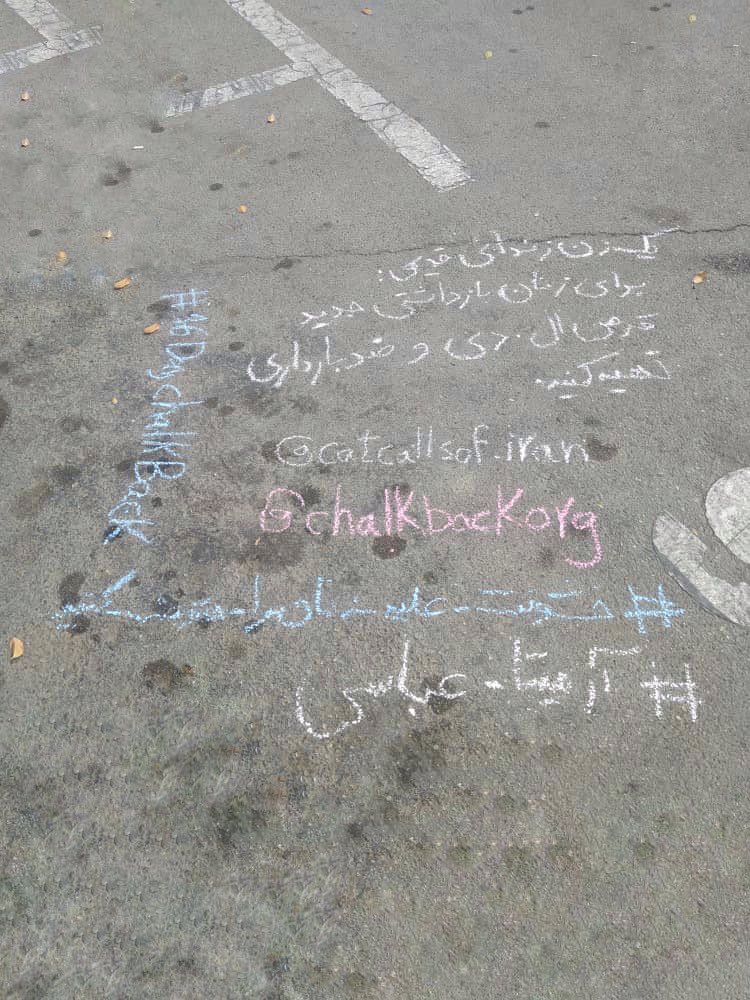 یک زن زندانی قدیمی:
برای زنان بازداشتی جدید
قرص ال.دی و ضدبارداری
تهیه کنید.
@catcallsof.iran
@chalkbackorg
#خشونت_علیه_زنان_را_متوقف_کنید
#آرمیتا_عباسی
#16DaychalkBack